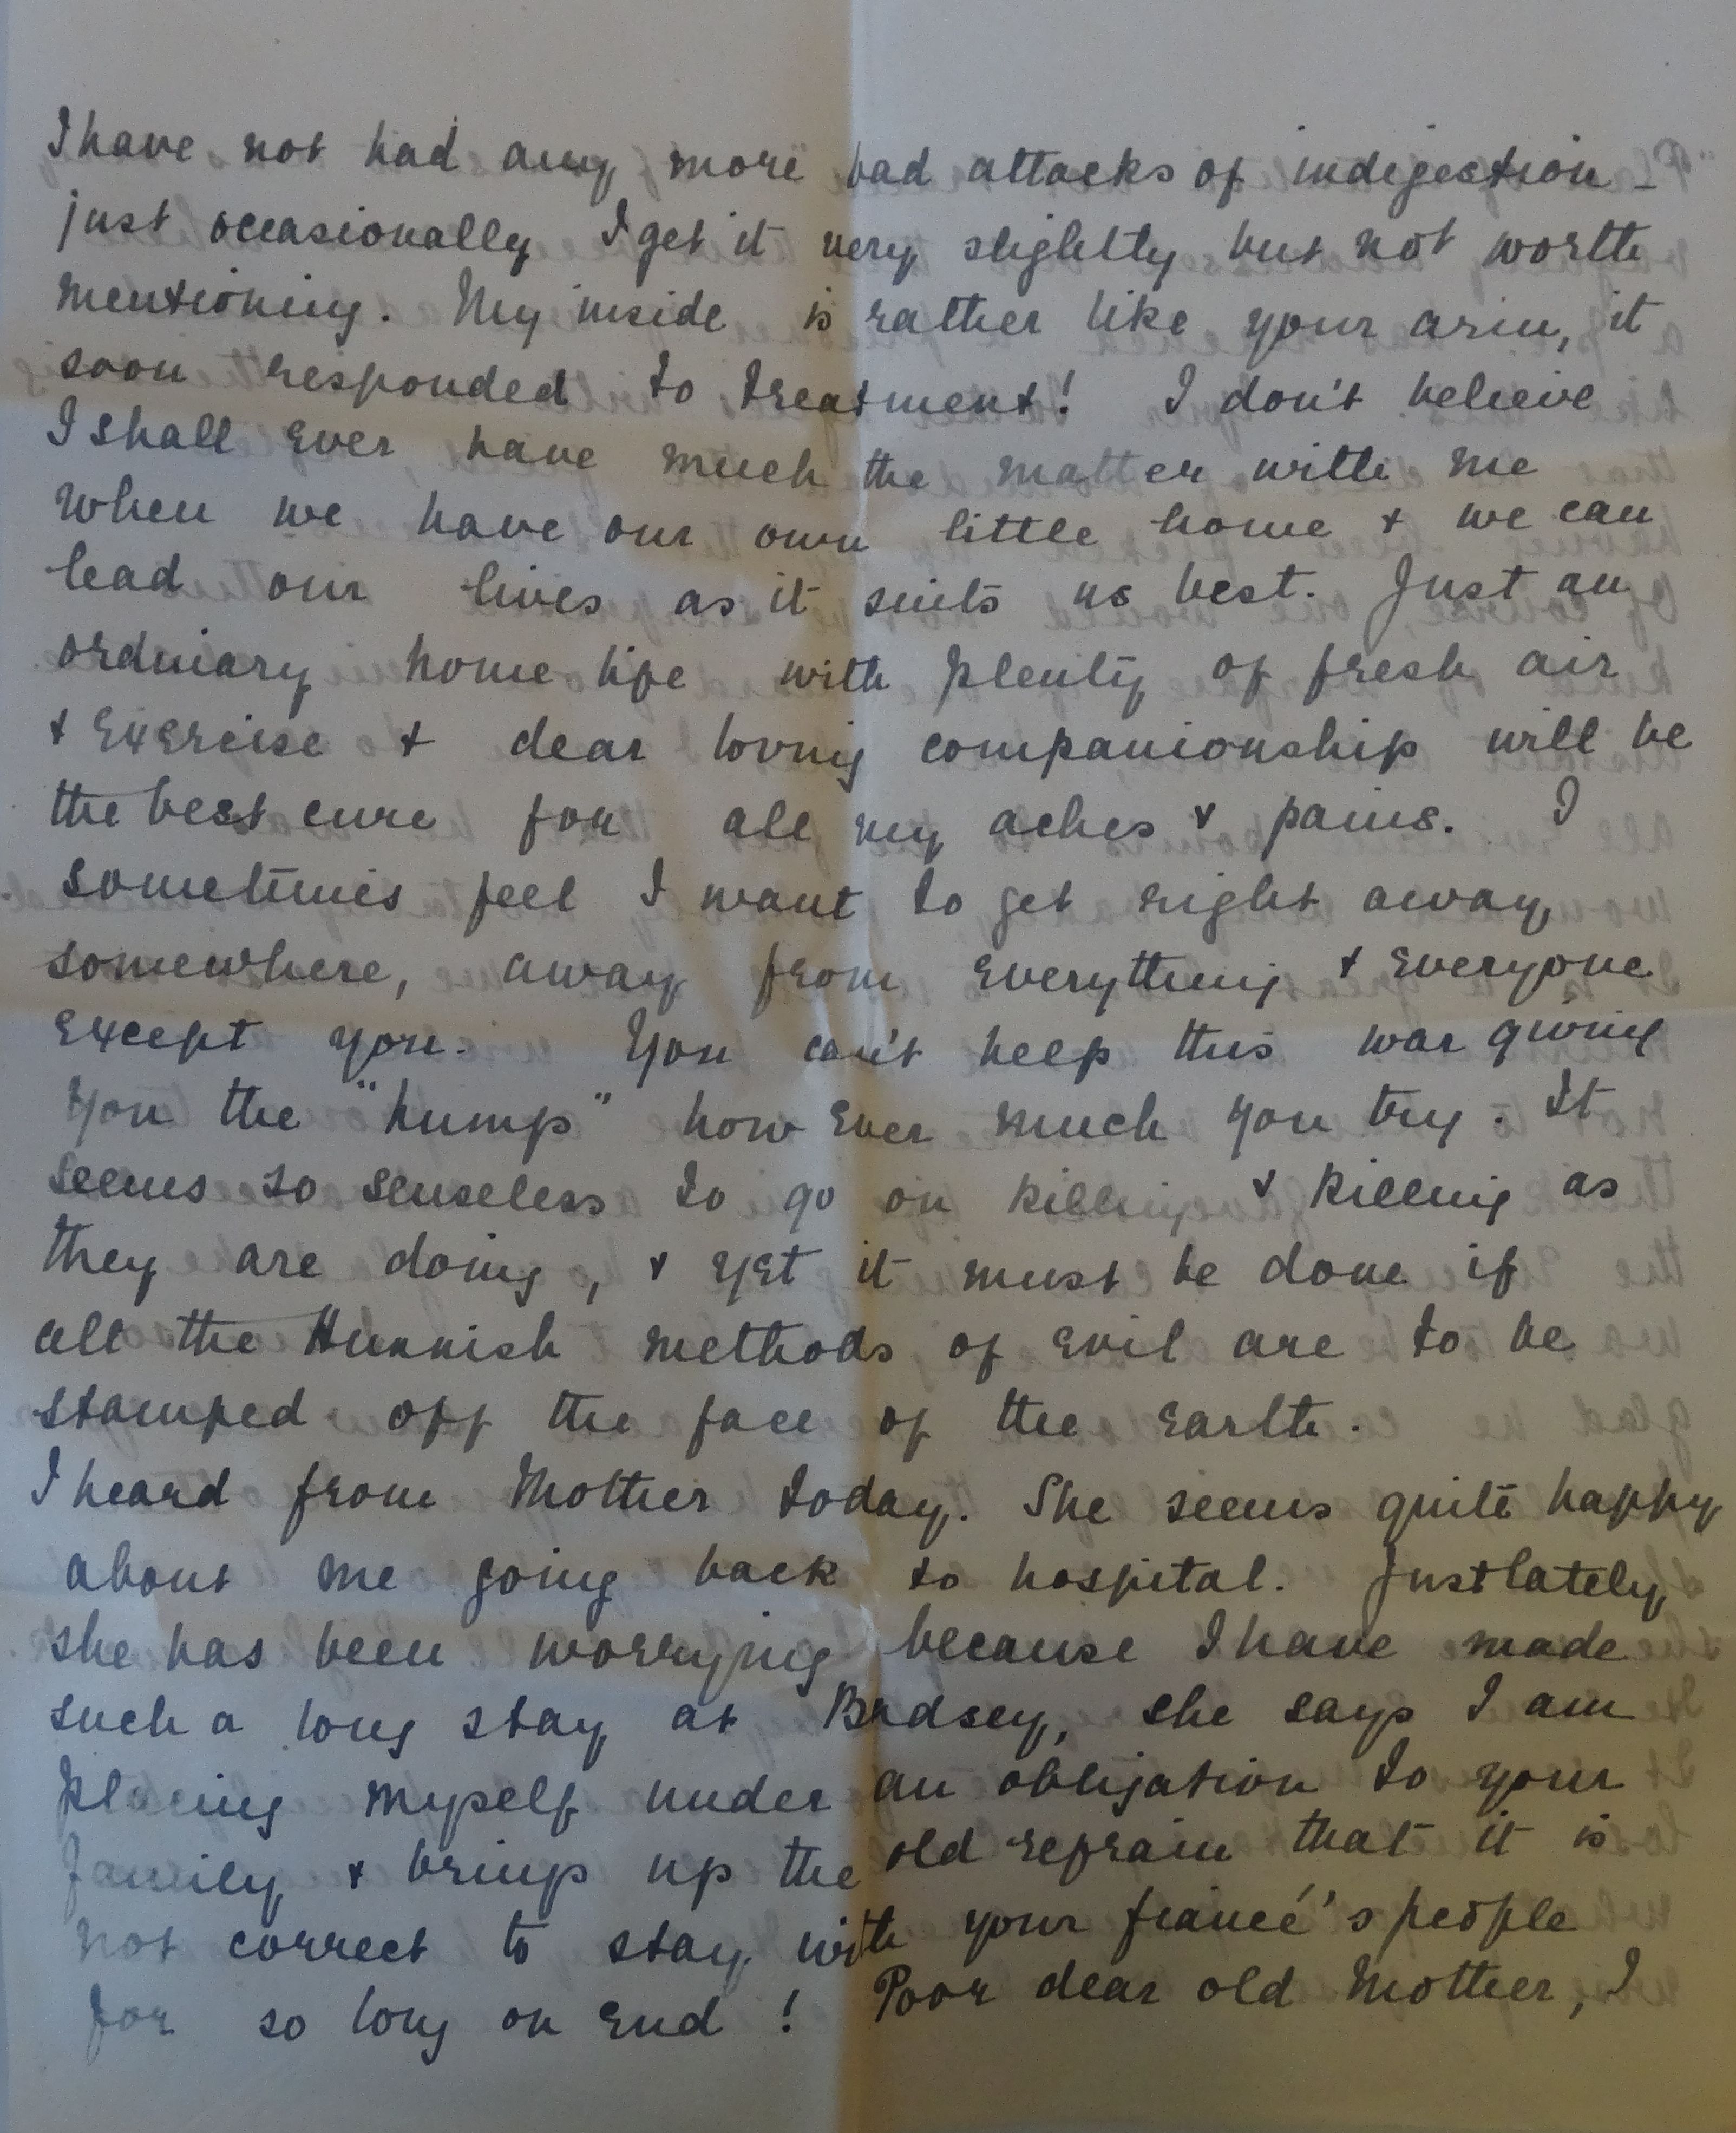 I have not had any more bad attacks of indigestion -
just occasionally I get it very slightly but not worth
mentioning. My inside is rather like your arm, it
soon responded to treatment! I don't believe
I shall ever have much the matter with me
when we have our own little home + we can
lead our lives as it suits us best. Just an
ordinary home life with plenty of fresh air
+ exercise + dear loving companionship will be
the best cure for all my aches + pains. I
sometimes feel I want to get right away
somewhere, away from everything + everyone
except you. You can't help this war giving
you the "hump" how ever much you try. It
seems so senseless to go on killing + killing as
they are doing, + yet it must be done if
all the Hunnish methods of evil are to be
stamped off the face of the earth.
I heard from Mother today. She seems quite happy
about me going back to hospital. Just lately
she has been worrying because I have made
such a long stay at Badsey, she says I am
placing myself under an obligation to your
family + brings up the old refrain that it is
not correct to stay with your fiancé's people
for so long on end! Poor dear old Mother, I